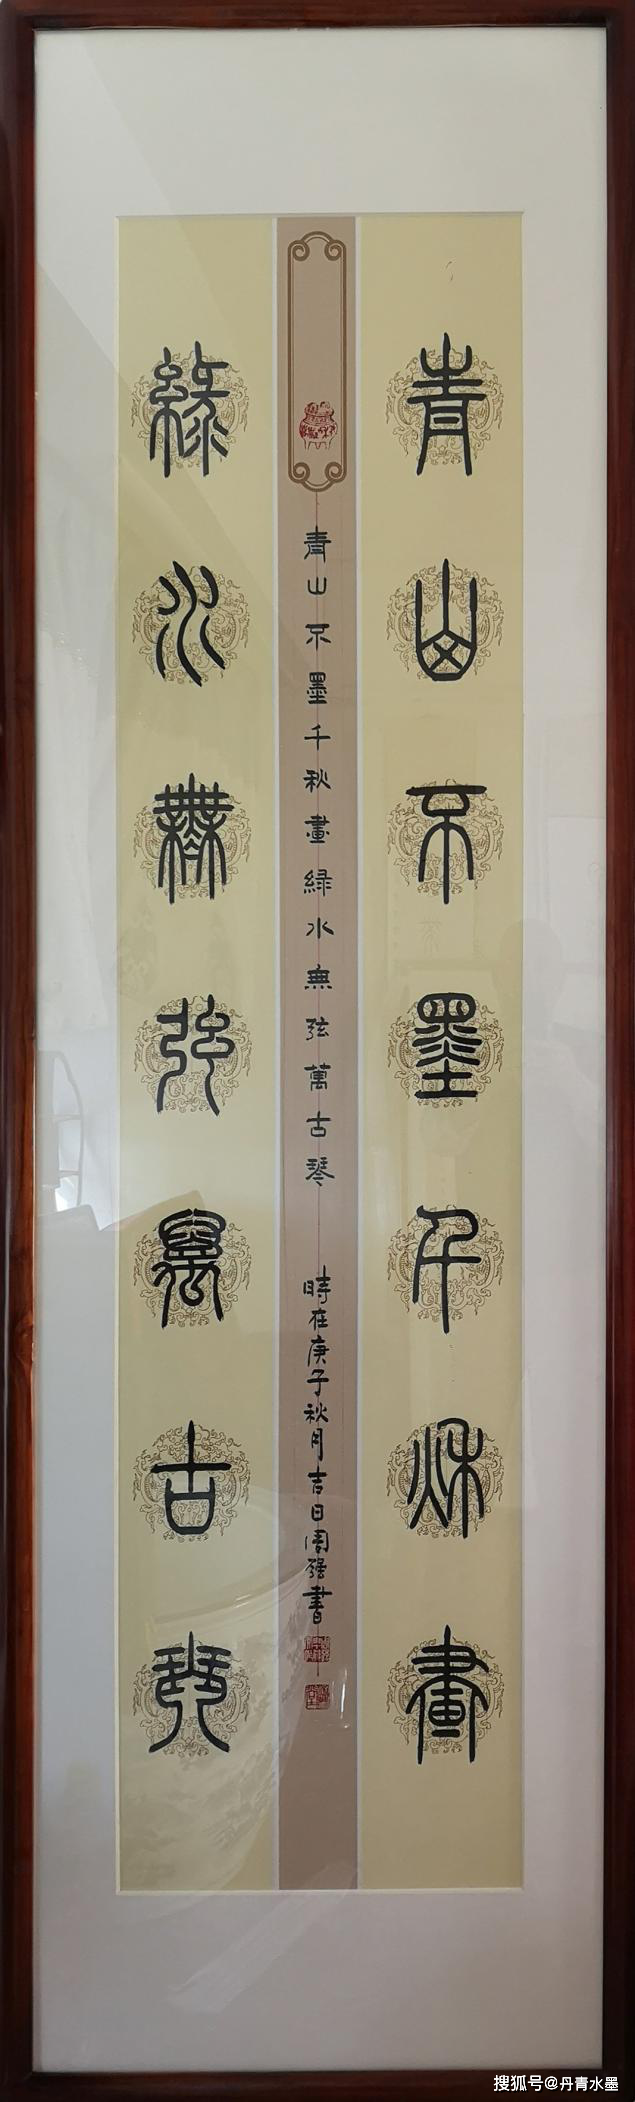 青山不墨千秋畫
綠水無弦萬古琴
青山不墨千秋畫綠水無弦萬古琴
時在庚子秋月吉日周強書
搜狐号@丹青水墨